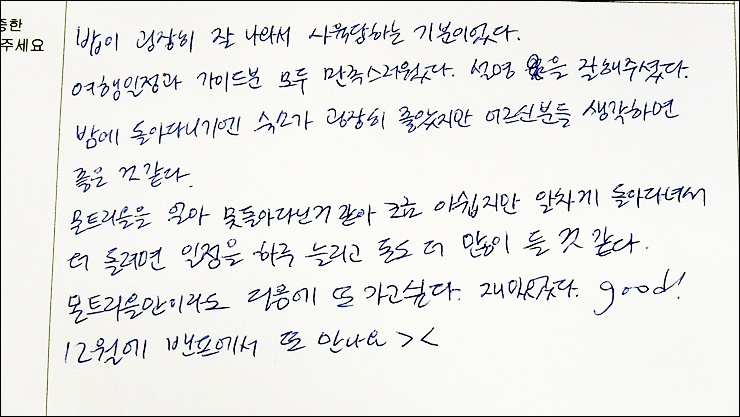 중한
주세요
밥이 굉장히 잘 나와서 사육당하는 기분이었다.
여행일정과 가이드분 모두 만족스러웠다. 설명 을 잘해주셨다.
밤에 돌아다니기엔 숙소가 굉장히 좋았지만 어르신분들 생각하면
좋은 것 같다.
몬트리올을 얼마 못돌아다닌거 같아 조금 아쉽지만 알차게 돌아다녀서
더 돌려면 일정을 하루 늘리고 돈도 더 많이 들 것 같다.
몬트리올만이라도 다음에 또 가고싶다. 재미있었다. good!
12월에 밴프에서 또 만나요 ><